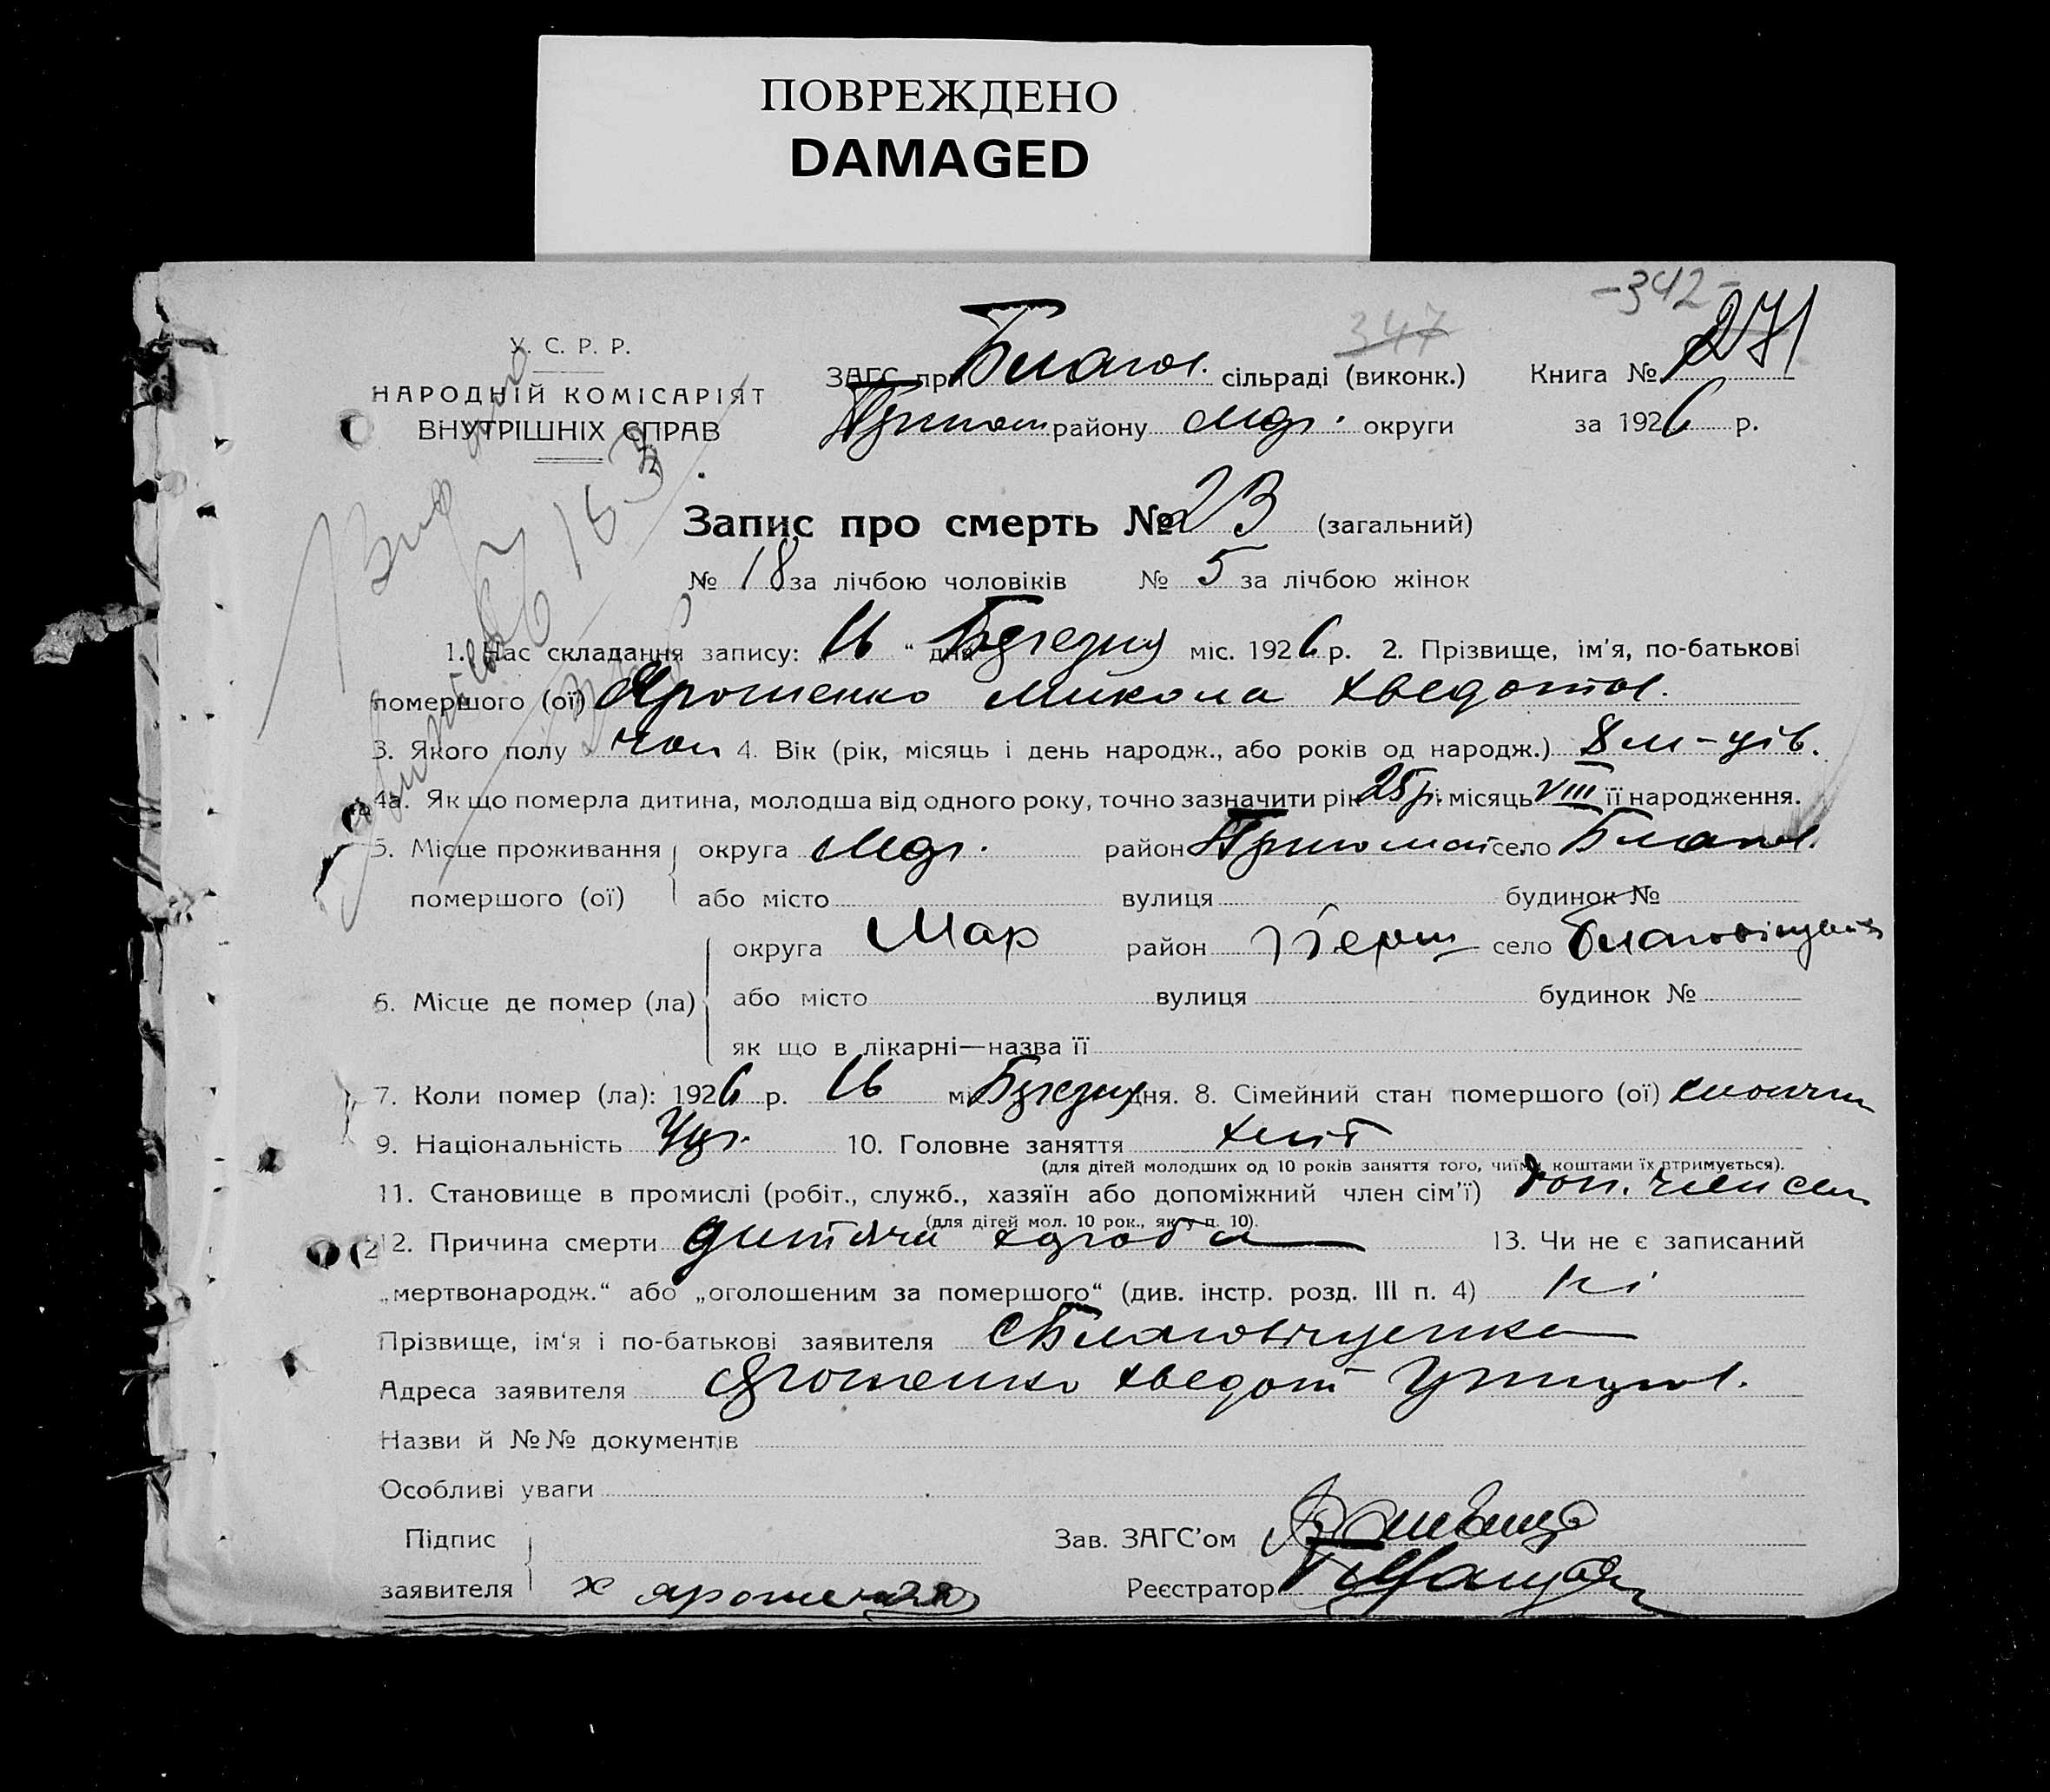 ПОВРЕЖДЕНО
DAMAGED
-342-
347
271
У. С. Р. Р.
НАРОДНІЙ КОМІСАРІЯТ
ВНУТРІШНІХ СПРАВ
ЗАГС при Благов. сільраді (виконк.) Книга №
району Мар. округи за 1926 р.
Запис про смерть № 23 (загальний)
№ 18 за лічбою чоловіків № 5 за лічбою жінок
1. Час складання запису: „16“ дня Березня міс. 1926 р. 2. Прізвище, ім’я, по-батькові
помершого (ої) Ярошенко Микола Хведотов.
3. Якого полу чол 4. Вік (рік, місяць і день народж., або років од народж.) 8 м-ців.
4а. Як що померла дитина, молодша від одного року, точно зазначити рік 25 р. місяць VIII її народження.
5. Місце проживання округа Мар. район село Благов.
помершого (ої) або місто вулиця будинок №
округа Мар район Перш село Благовіщенка
6. Місце де помер (ла) або місто вулиця будинок №
як що в лікарні—назва її
7. Коли помер (ла): 1926 р. 16 міс. Березня дня. 8. Сімейний стан помершого (ої)
9. Національність Укр. 10. Головне заняття хліб
(для дітей молодших од 10 років заняття того, чиїми коштами їх втримується).
11. Становище в промислі (робіт., служб., хазяїн або допоміжний член сім’ї) доп. член сем
(для дітей мол. 10 рок., як у п. 10).
12. Причина смерти дитяча хороба 13. Чи не є записаний
„мертвонародж.“ або „оголошеним за помершого“ (див. інстр. розд. III п. 4) ні
Прізвище, ім‘я і по-батькові заявителя с Благовіщенка
Адреса заявителя Ярошенко Хведот
Назви й №№ документів
Особливі уваги
Підпис Зав. ЗАГС’ом
заявителя х Ярошенко Реєстратор